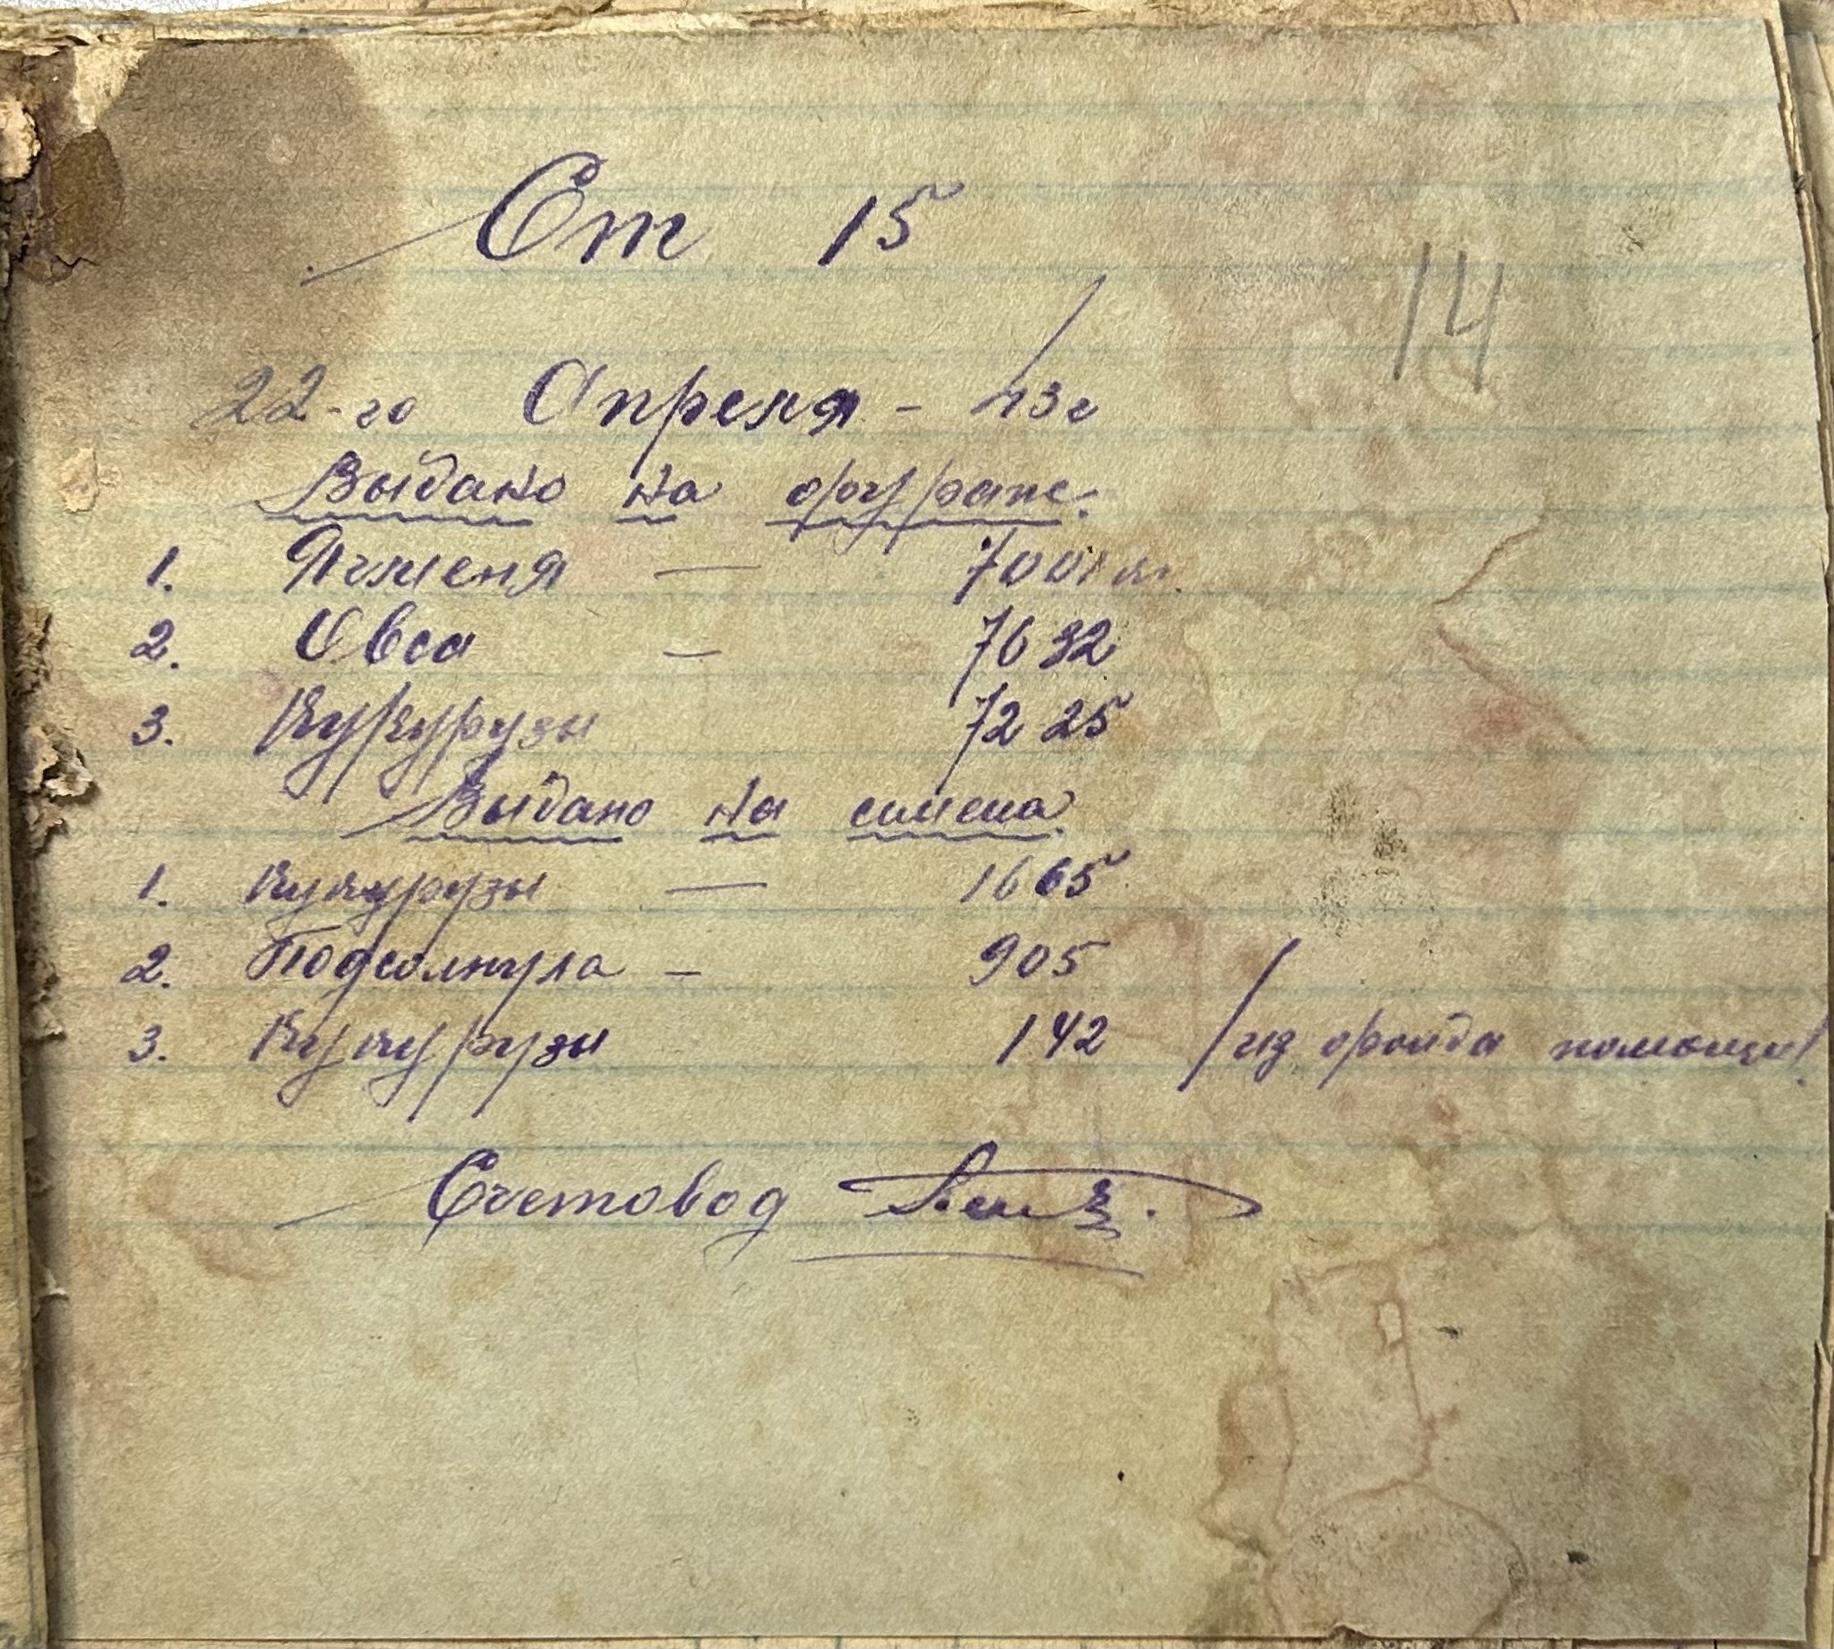 От 15
14
22-го Апреля - 43г
Выдано на фураж.
1. Ячменя — 700 кг.
2. Овса — 7632
3. Кукурузы 7225
Выдано на симена.
1. Кукурузы — 1665
2. Подсолнула — 905
3. Кукурузы 142 /из фонда помощи/
Счетовод